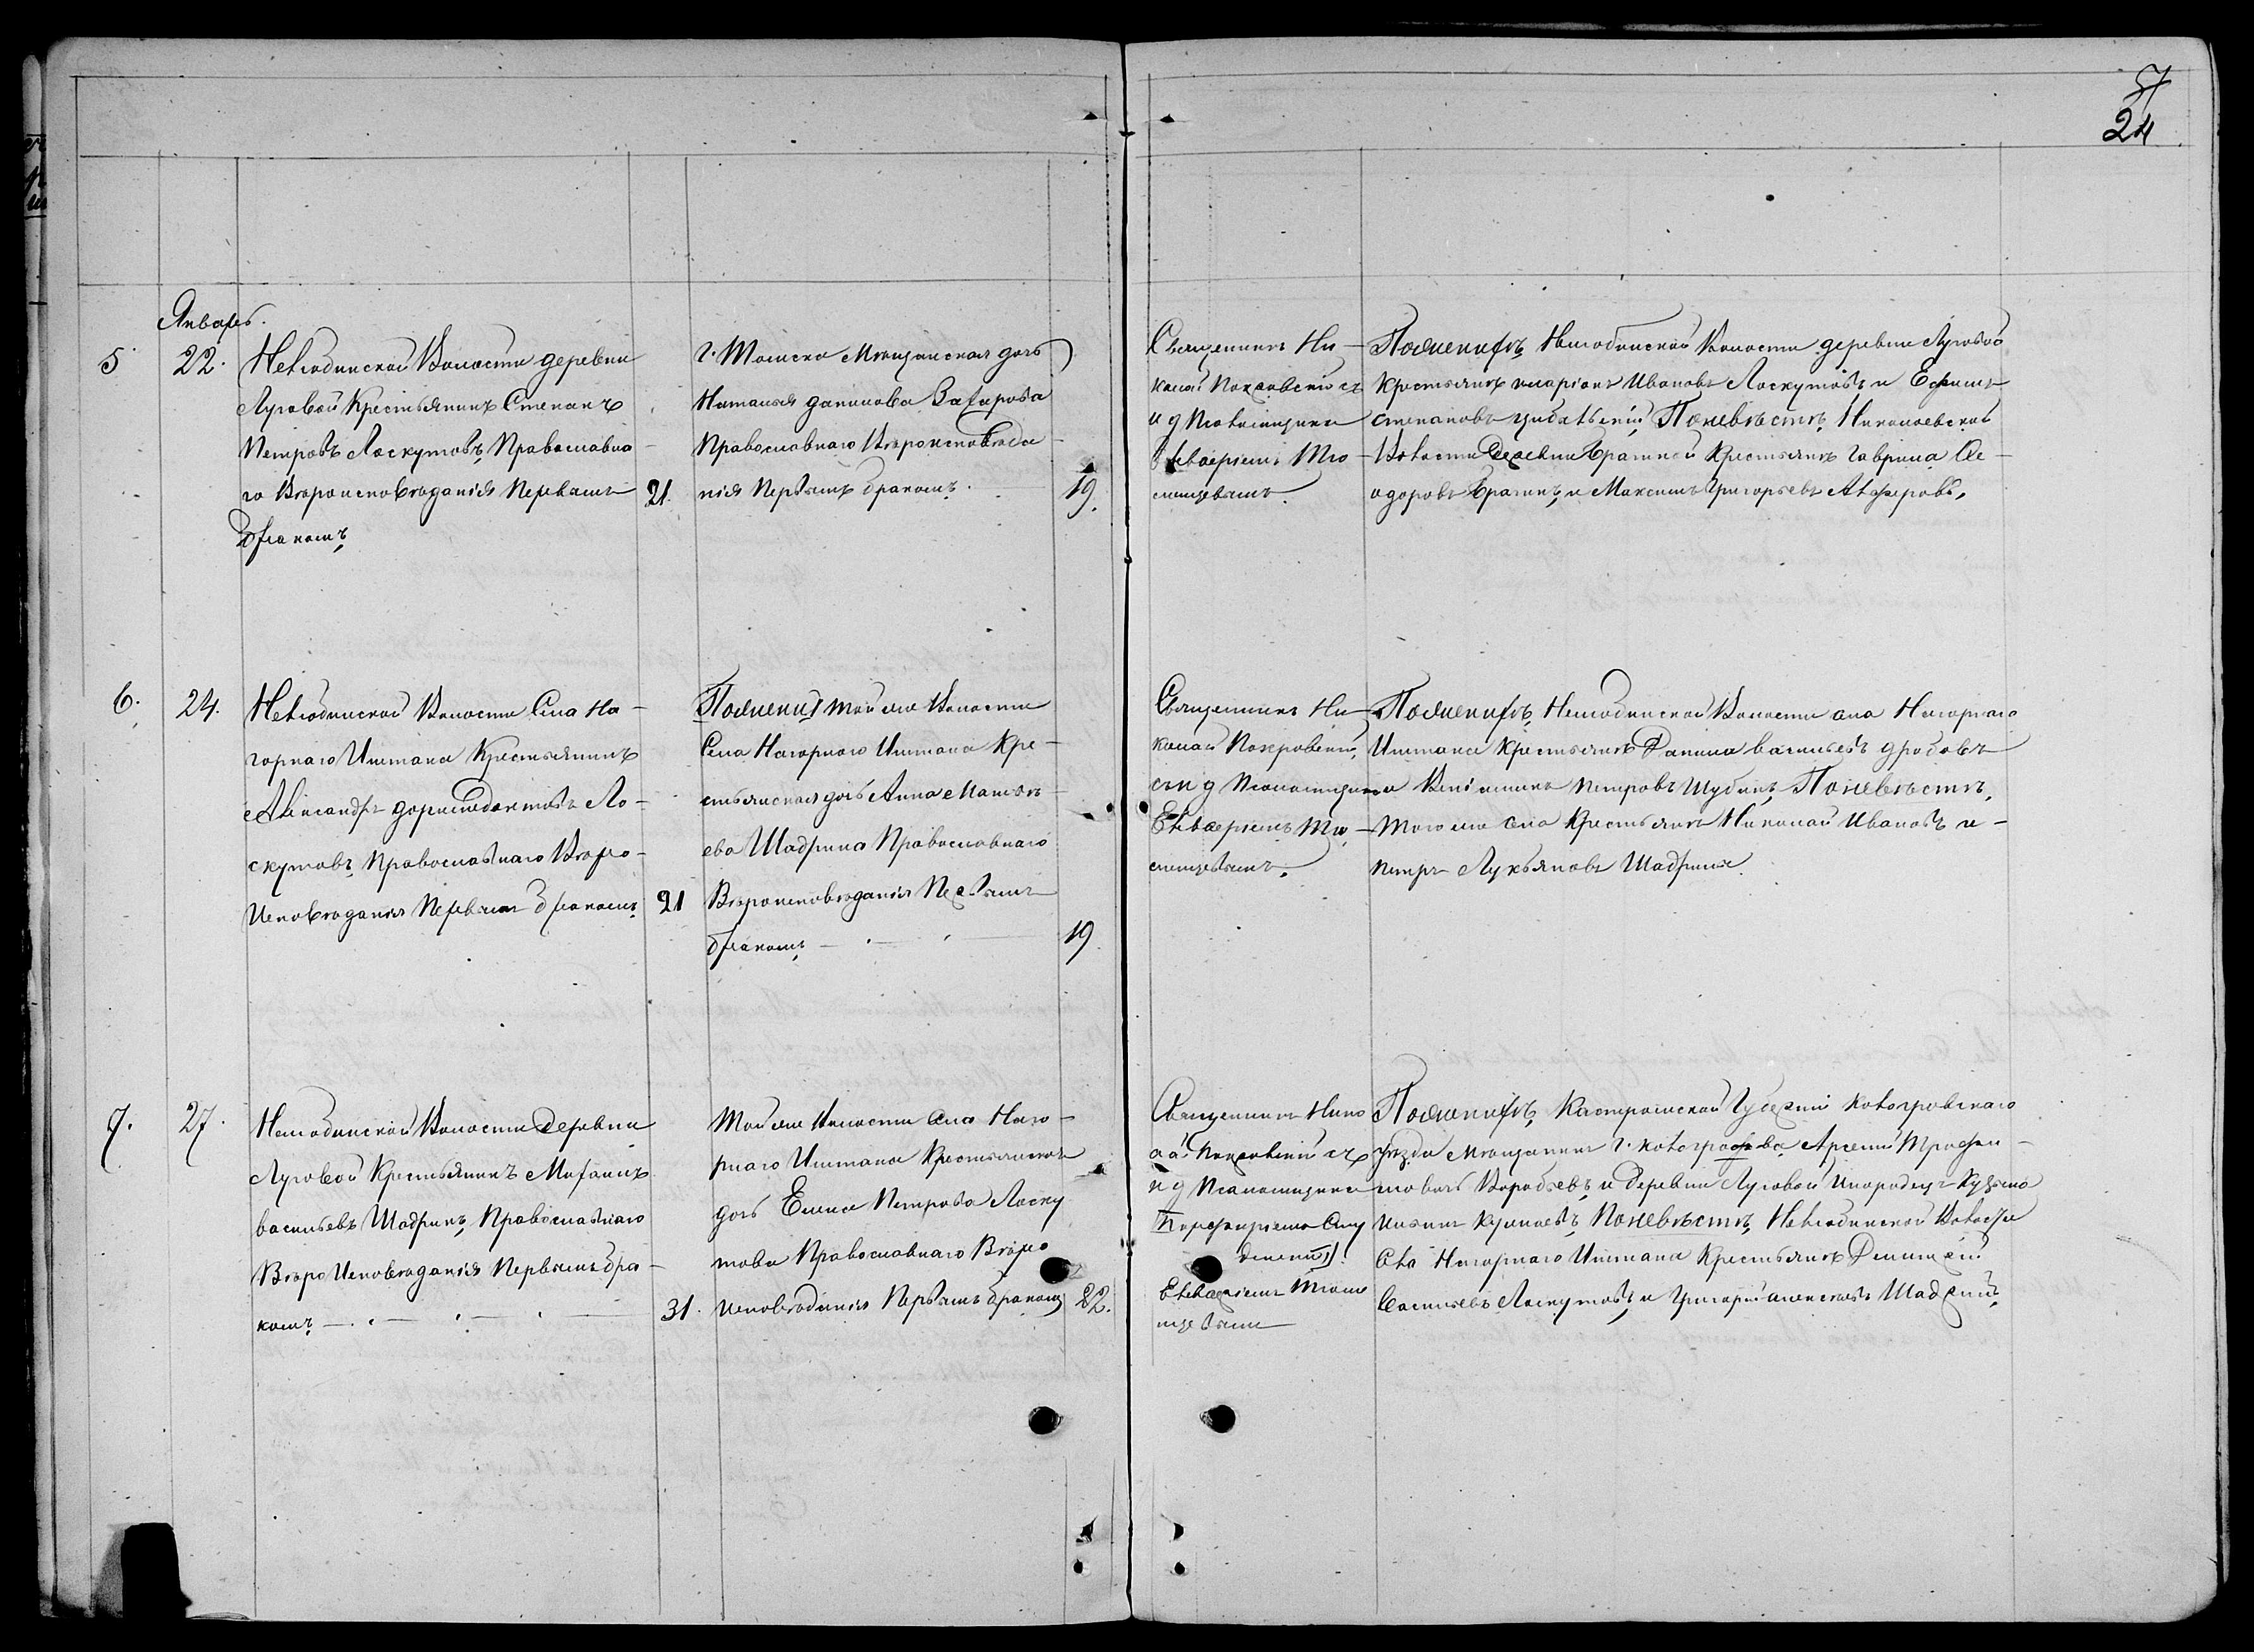 57
24
Январь.
5
22.
Нелюбинской Волости деревни
Луговой Крестьянинъ Степанъ
Петровъ Лоскутовъ, Православна
го Вѣроисповѣданія Первымъ
бракомъ,
21.
г. Томска Мѣщанская дочь
Наталья Данилова Захарова
Православнаго Вѣроисповѣда
нія Первымъ бракомъ.
19.
Священникъ Ни-
колай Покровскій съ
и д Псаломщика
Евлаеріемъ Тю-
менцевымъ.
По женихѣ, Нелюбинской Волости деревни Луговой
Крестьянинъ иларіонъ Ивановъ Лоскутовъ и Ефимъ
степановъ По невѣстѣ, Николаевской
Волости Деревни Крестьянинъ Гаврила Ѳе-
одоровъ и Максимъ Григорьевъ
6.
24.
Нелюбинской Волости Села На-
горнаго Иштана Крестьянинъ
Александръ Ло-
скутовъ, Православнаго Вѣро-
Исповѣданія Первымъ бракомъ,
21
тойже Волости
Села Нагорнаго Иштана Кре-
стьянская дочь Анна Матвѣ-
ева Шадрина Православнаго
Вѣроисповѣданія Первымъ
бракомъ,
19
Священникъ Ни-
колай Покровскій,
съ и д Псаломщика
Евлаеріемъ Тю-
менцевымъ.
По женихѣ, Нелюбинской Волости села Нагорнаго
Иштана Крестьянинъ Данила васильевъ
и Веніаминъ Петровъ Шубинъ, По невѣстѣ,
Тогоже села Крестьянинъ Николай Ивановъ и-
петръ Лукьяновъ Шадрины.
7.
27.
Нелюбинской Волости Деревни
Луговой Крестьянинъ Михаилъ
васильевъ Шадринъ, Православнаго
ВѣроИсповѣданія Первымъ бра-
комъ,
31.
Тойже Волости Села Наго-
рнаго Иштана Крестьянская
дочь Елена Петрова Лоску
това Православнаго Вѣро
исповѣданія Первымъ бракомъ,
22.
Священникъ Нико
лай Покровскій съ
и д Псаломщика
Порфиріемъ
Евлаеріемъ Тюме
нцевымъ
По женихѣ, Костромской Губерніи Кологривскаго
уѣзда мѣщанинъ г. Арсеній Трофи-
мовичъ Воробьевъ, и Деревни Луговой Инородецъ Кузьма
По невѣстѣ, Нелюбинской Волости
Села Нагорнаго Иштана Крестьянинъ Димитрій
Васильевъ Лоскутовъ, и Григорій алексѣевъ Шадринъ,